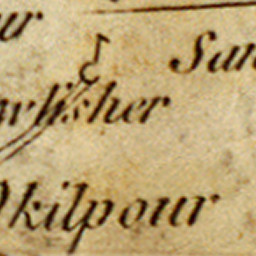 ur
San
wlisher
Okilpour